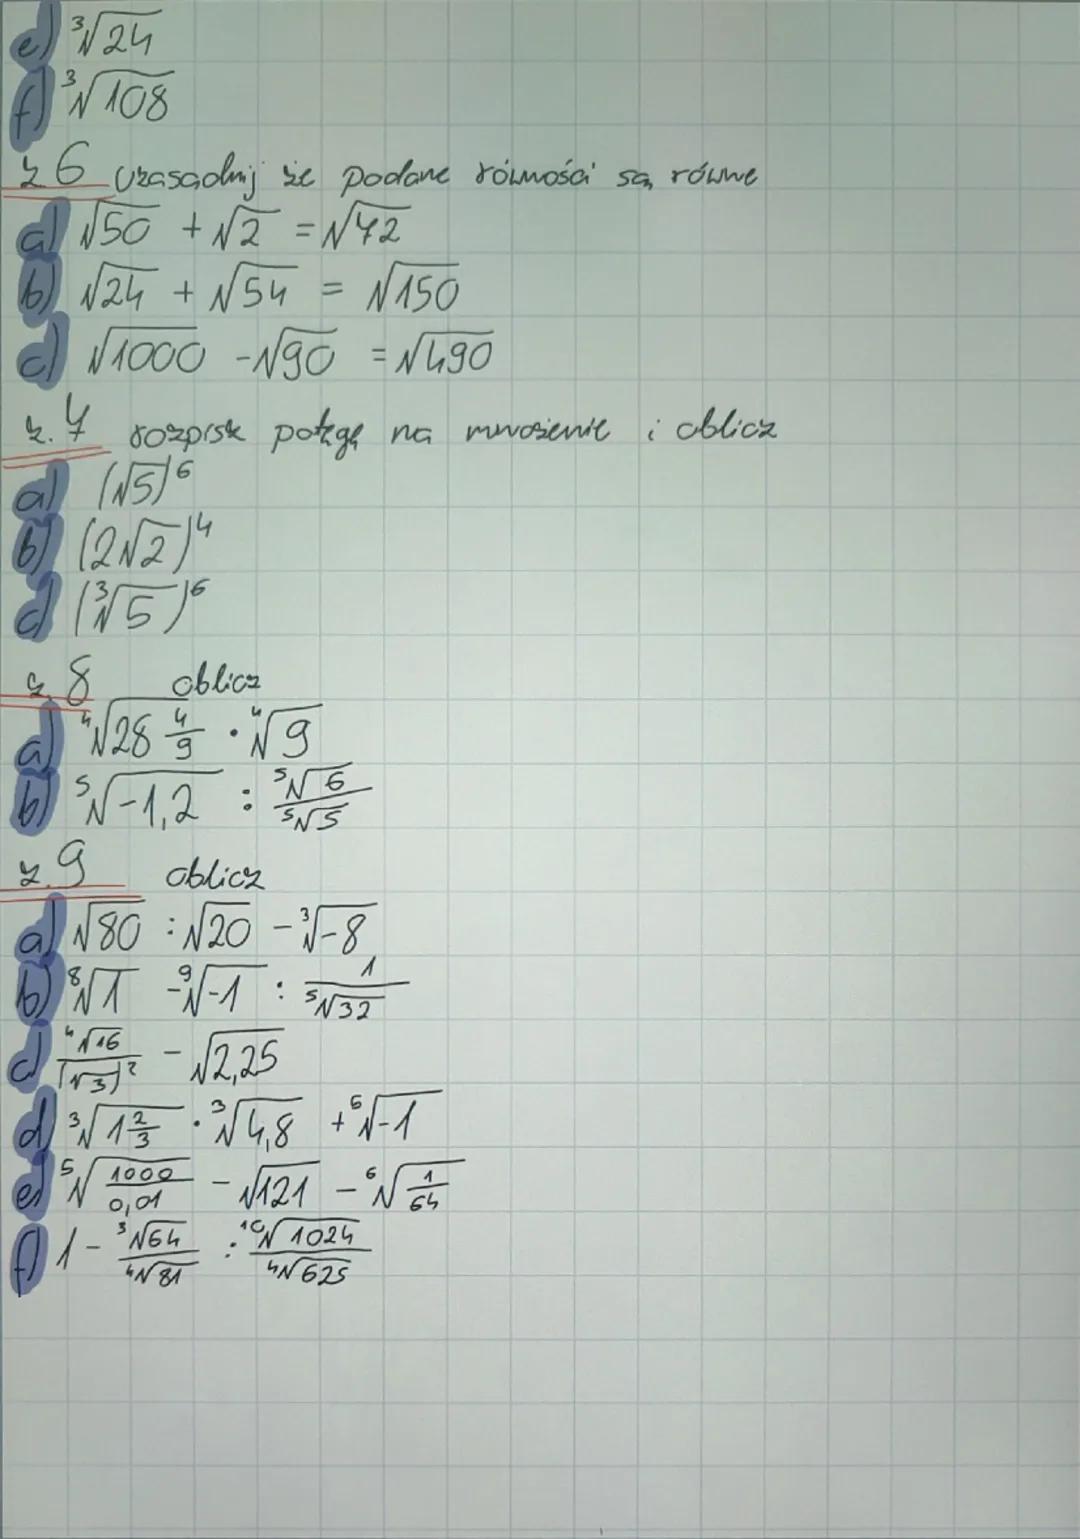 e) ∛24
f) ∛108
z 6 uzasadnij że podane równości są równe
a) √50 + √2 = √72
b) √24 + √54 = √150
c) √1000 - √90 = √490
z. 7 rozpisk potęgę na mnożenie i oblicz
a) (√5)⁶
b) (2√2)⁴
c) (∛5)⁶
z. 8 oblicz
a) ⁴√28 4/9 · ⁴√9
b) ⁵√-1,2 : ⁵√6/⁵√5
z. 9 oblicz
a) √80 : √20 - ∛-8
b) ⁸√1 - ⁹√-1 : 1/⁵√32
c) ⁴√16/(√3)² - √2,25
d) ∛1 2/3 · ∛4,8 + ⁵√-1
e) ⁵√1000/0,01 - √121 - ⁶√1/64
f) 1 - ∛64/⁴√81 : ¹⁰√1024/⁴√625